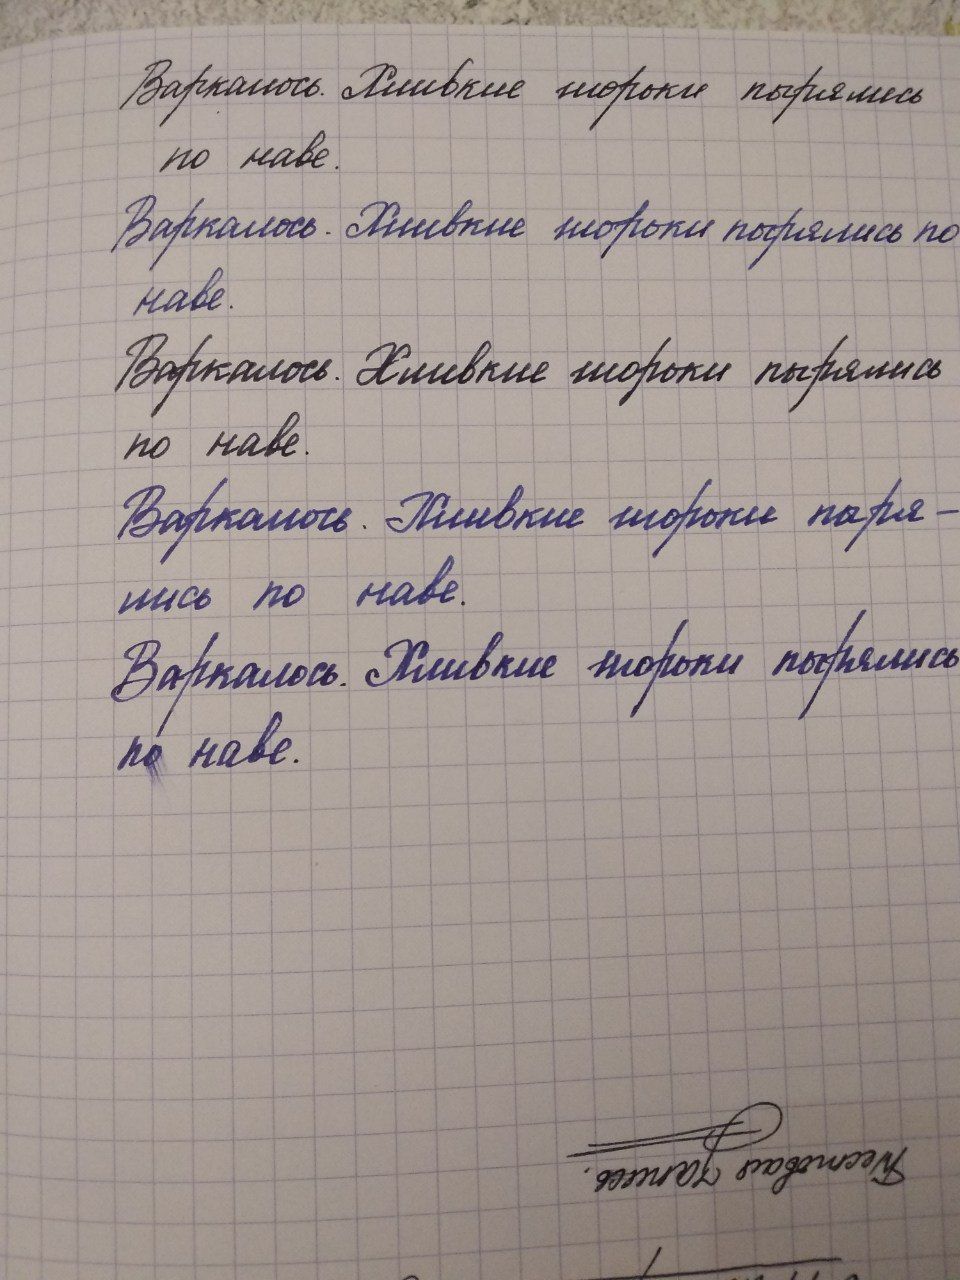 Варкалось. Хливкие шорьки пырялись
по наве.
Варкалось. Хливкие шорьки пырялись по
наве.
Варкалось. Хливкие шорьки пырялись
по наве.
Варкалось. Хливкие шорьки пыря-
лись по наве.
Варкалось. Хливкие шорьки пырялись
по наве.
Тестовая запись.